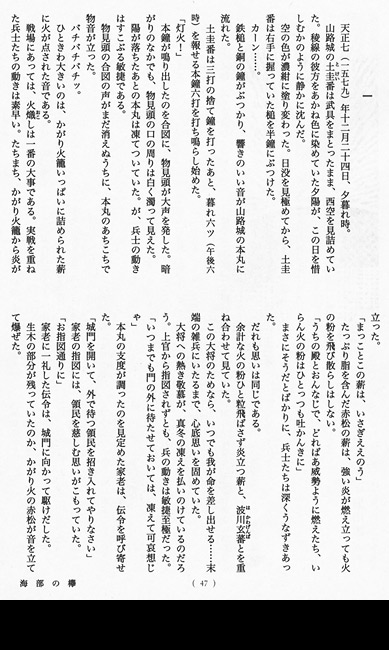 一
天正七(一五七九)年十二月二十四日、夕暮れ時。
山路城の土圭番は武具をまとったまま、西空を見詰めてい
た。稜線の彼方をあかね色に染めていた夕陽が、この日を惜
しむかのように静かに沈んだ。
空の色が濃紺に塗り変わった。日没を見極めてから、土圭
番は右手に握っていた槌を半鐘にぶつけた。
カーン……。
鉄槌と銅の鐘がぶつかり、響きのいい音が山路城の本丸に
流れた。
土圭番は三打の捨て鐘を打ったあと、暮れ六ツ(午後六
時)を報せる本鐘六打を打ち鳴らし始めた。
「灯火!」
本鐘が鳴り出したのを合図に、物見頭が大声を発した。暗
がりのなかでも、物見頭の口の周りは白く濁って見えた。
陽が落ちたあとの本丸は凍てついていた。が、兵士の動き
はすこぶる敏捷である。
物見頭の合図の声がまだ消えぬうちに、本丸のあちこちで
物音が立った。
バチバチバチッ。
ひときわ大きいのは、かがり火籠いっぱいに詰められた薪
に火が点された音である。
戦場にあっては、火熾しは一番の大事である。実戦を重ね
た兵士たちの動きは素早い。たちまち、かがり火籠から炎が
立った。
「まっことこの薪は、いさぎええのう」
たっぷり脂を含んだ赤松の薪は、強い炎が燃え立っても火
の粉を飛び散らしはしない。
「うちの殿とおんなじで、どればあ威勢ように燃えたち、い
らん火の粉はひとっつも吐かんきに」
まさにそうだとばかりに、兵士たちは深くうなずきあっ
た。
だれも思いは同じである。
余計な火の粉ひと粒飛ばさず炎立つ薪と、波川玄蕃とを重
ね合わせて見ていた。
この大将のためなら、いつでも我が命を差し出せる……末
端の雑兵にいたるまで、心底思いを固めていた。
大将への熱き敬慕が、真冬の凍えを払いのけているのだろ
う。上官から指図されずとも、兵の動きは敏捷至極だった。
「いつまでも門の外に待たせておいては、凍えて可哀想じ
ゃ」
本丸の支度が調ったのを見定めた家老は、伝令を呼び寄せ
た。
「城門を開いて、外で待つ領民を招き入れてやりなさい」
家老の指図には、領民を慈しむ思いがこもっていた。
「お指図通りに」
家老に一礼した伝令は、城門に向かって駆けだした。
生木の部分が残っていたのか、かがり火の赤松が音を立て
て爆ぜた。
( 47 )
海部の欅